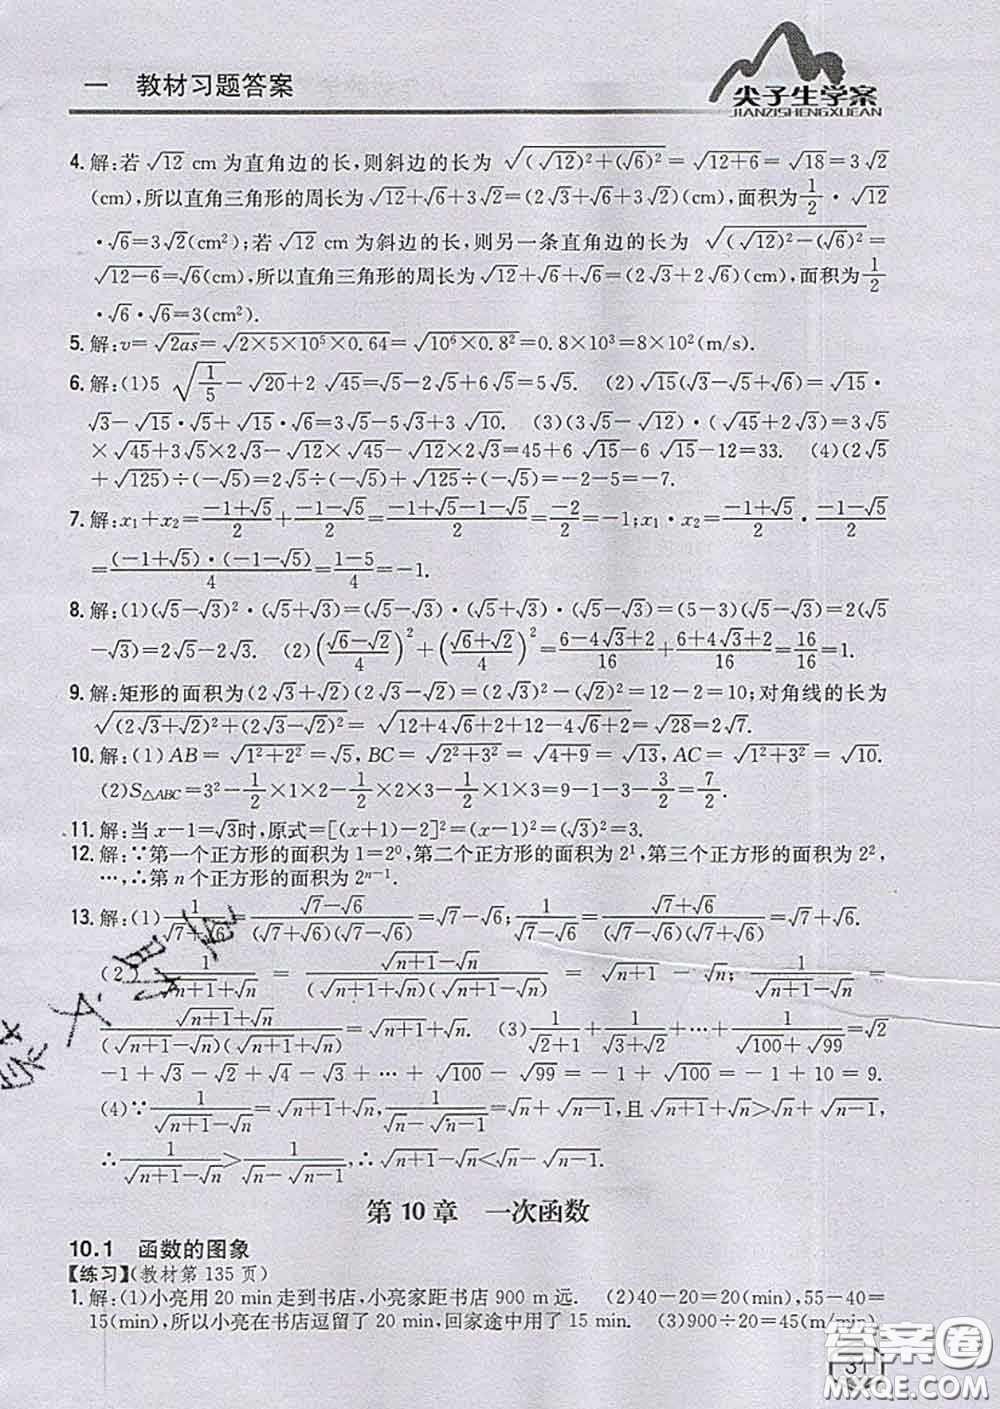 一 教材习题答案
尖子生学案
JIANZISHENGXUEAN
4.解:若√12 cm 为直角边的长,则斜边的长为 √((√12)²+(√6)²)=√(12+6)=√18=3√2
(cm),所以直角三角形的周长为√12+√6+3√2=(2√3+√6+3√2)(cm),面积为1/2·√12
·√6=3√2(cm²);若√12 cm为斜边的长,则另一条直角边的长为 √((√12)²-(√6)²)=
√(12-6)=√6(cm),所以直角三角形的周长为√12+√6+√6=(2√3+2√6)(cm),面积为1/2
·√6·√6=3(cm²).
5.解:v=√(2as)=√(2×5×10⁵×0.64)=√(10⁶×0.8²)=0.8×10³=8×10²(m/s).
6.解:(1)5√(1/5)-√20+2√45=√5-2√5+6√5=5√5. (2)√15(√3-√5+√6)=√15·
√3-√15·√5+√15·√6=3√5-5√3+3√10. (3)(3√5-√12)·(√45+2√3)=3√5
×√45+3√5×2√3-√12×√45-√12×2√3=45+6√15-6√15-12=33. (4)(2√5
+√125)÷(-√5)=2√5÷(-√5)+√125÷(-√5)=-2-5=-7.
7.解:x₁+x₂=(-1+√5)/2+(-1-√5)/2=(-1+√5-1-√5)/2=-2/2=-1;x₁·x₂=(-1+√5)/2·(-1-√5)/2
=((-1+√5)·(-1-√5))/4=(1-5)/4=-1.
8.解:(1)(√5-√3)²·(√5+√3)=(√5-√3)·(√5+√3)·(√5-√3)=(5-3)(√5-√3)=2(√5
-√3)=2√5-2√3. (2)((√6-√2)/4)²+((√6+√2)/4)²=(6-4√3+2)/16+(6+4√3+2)/16=16/16=1.
9.解:矩形的面积为(2√3+√2)(2√3-√2)=(2√3)²-(√2)²=12-2=10;对角线的长为
√((2√3+√2)²+(2√3-√2)²)=√(12+4√6+2+12-4√6+2)=√28=2√7.
10.解:(1)AB=√(1²+2²)=√5,BC=√(2²+3²)=√(4+9)=√13,AC=√(1²+3²)=√10.
(2)S△ABC=3²-1/2×1×2-1/2×2×3-1/2×1×3=9-1-3-3/2=7/2.
11.解:当x-1=√3时,原式=[(x+1)-2]²=(x-1)²=(√3)²=3.
12.解:∵第一个正方形的面积为1=2⁰,第二个正方形的面积为2¹,第三个正方形的面积为2²,
…,∴第n个正方形的面积为2ⁿ⁻¹.
13.解:(1)1/(√7+√6)=(√7-√6)/((√7+√6)(√7-√6))=√7-√6;1/(√7-√6)=(√7+√6)/((√7-√6)(√7+√6))=√7+√6.
(2)1/(√(n+1)+√n)=(√(n+1)-√n)/((√(n+1)+√n)(√(n+1)-√n))=√(n+1)-√n;1/(√(n+1)-√n)=
(√(n+1)+√n)/((√(n+1)-√n)(√(n+1)+√n))=√(n+1)+√n. (3)1/(√2+1)+1/(√3+√2)+…+1/(√100+√99)=√2
-1+√3-√2+√4-√3+…+√100-√99=-1+√100=-1+10=9.
(4)∵1/(√(n+1)-√n)=√(n+1)+√n,1/(√n-√(n-1))=√n+√(n-1),且√(n+1)+√n>√n+√(n-1),
∴1/(√(n+1)-√n)>1/(√n-√(n-1)),∴√(n+1)-√n<√n-√(n-1).
第10章 一次函数
10.1 函数的图象
【练习】(教材第135页)
1.解:(1)小亮用20 min走到书店,小亮家距书店900 m远. (2)40-20=20(min),55-40=
15(min),所以小亮在书店逗留了20 min,回家途中用了15 min. (3)900÷20=45(m/min),
31
答案圈
MXQE.COM